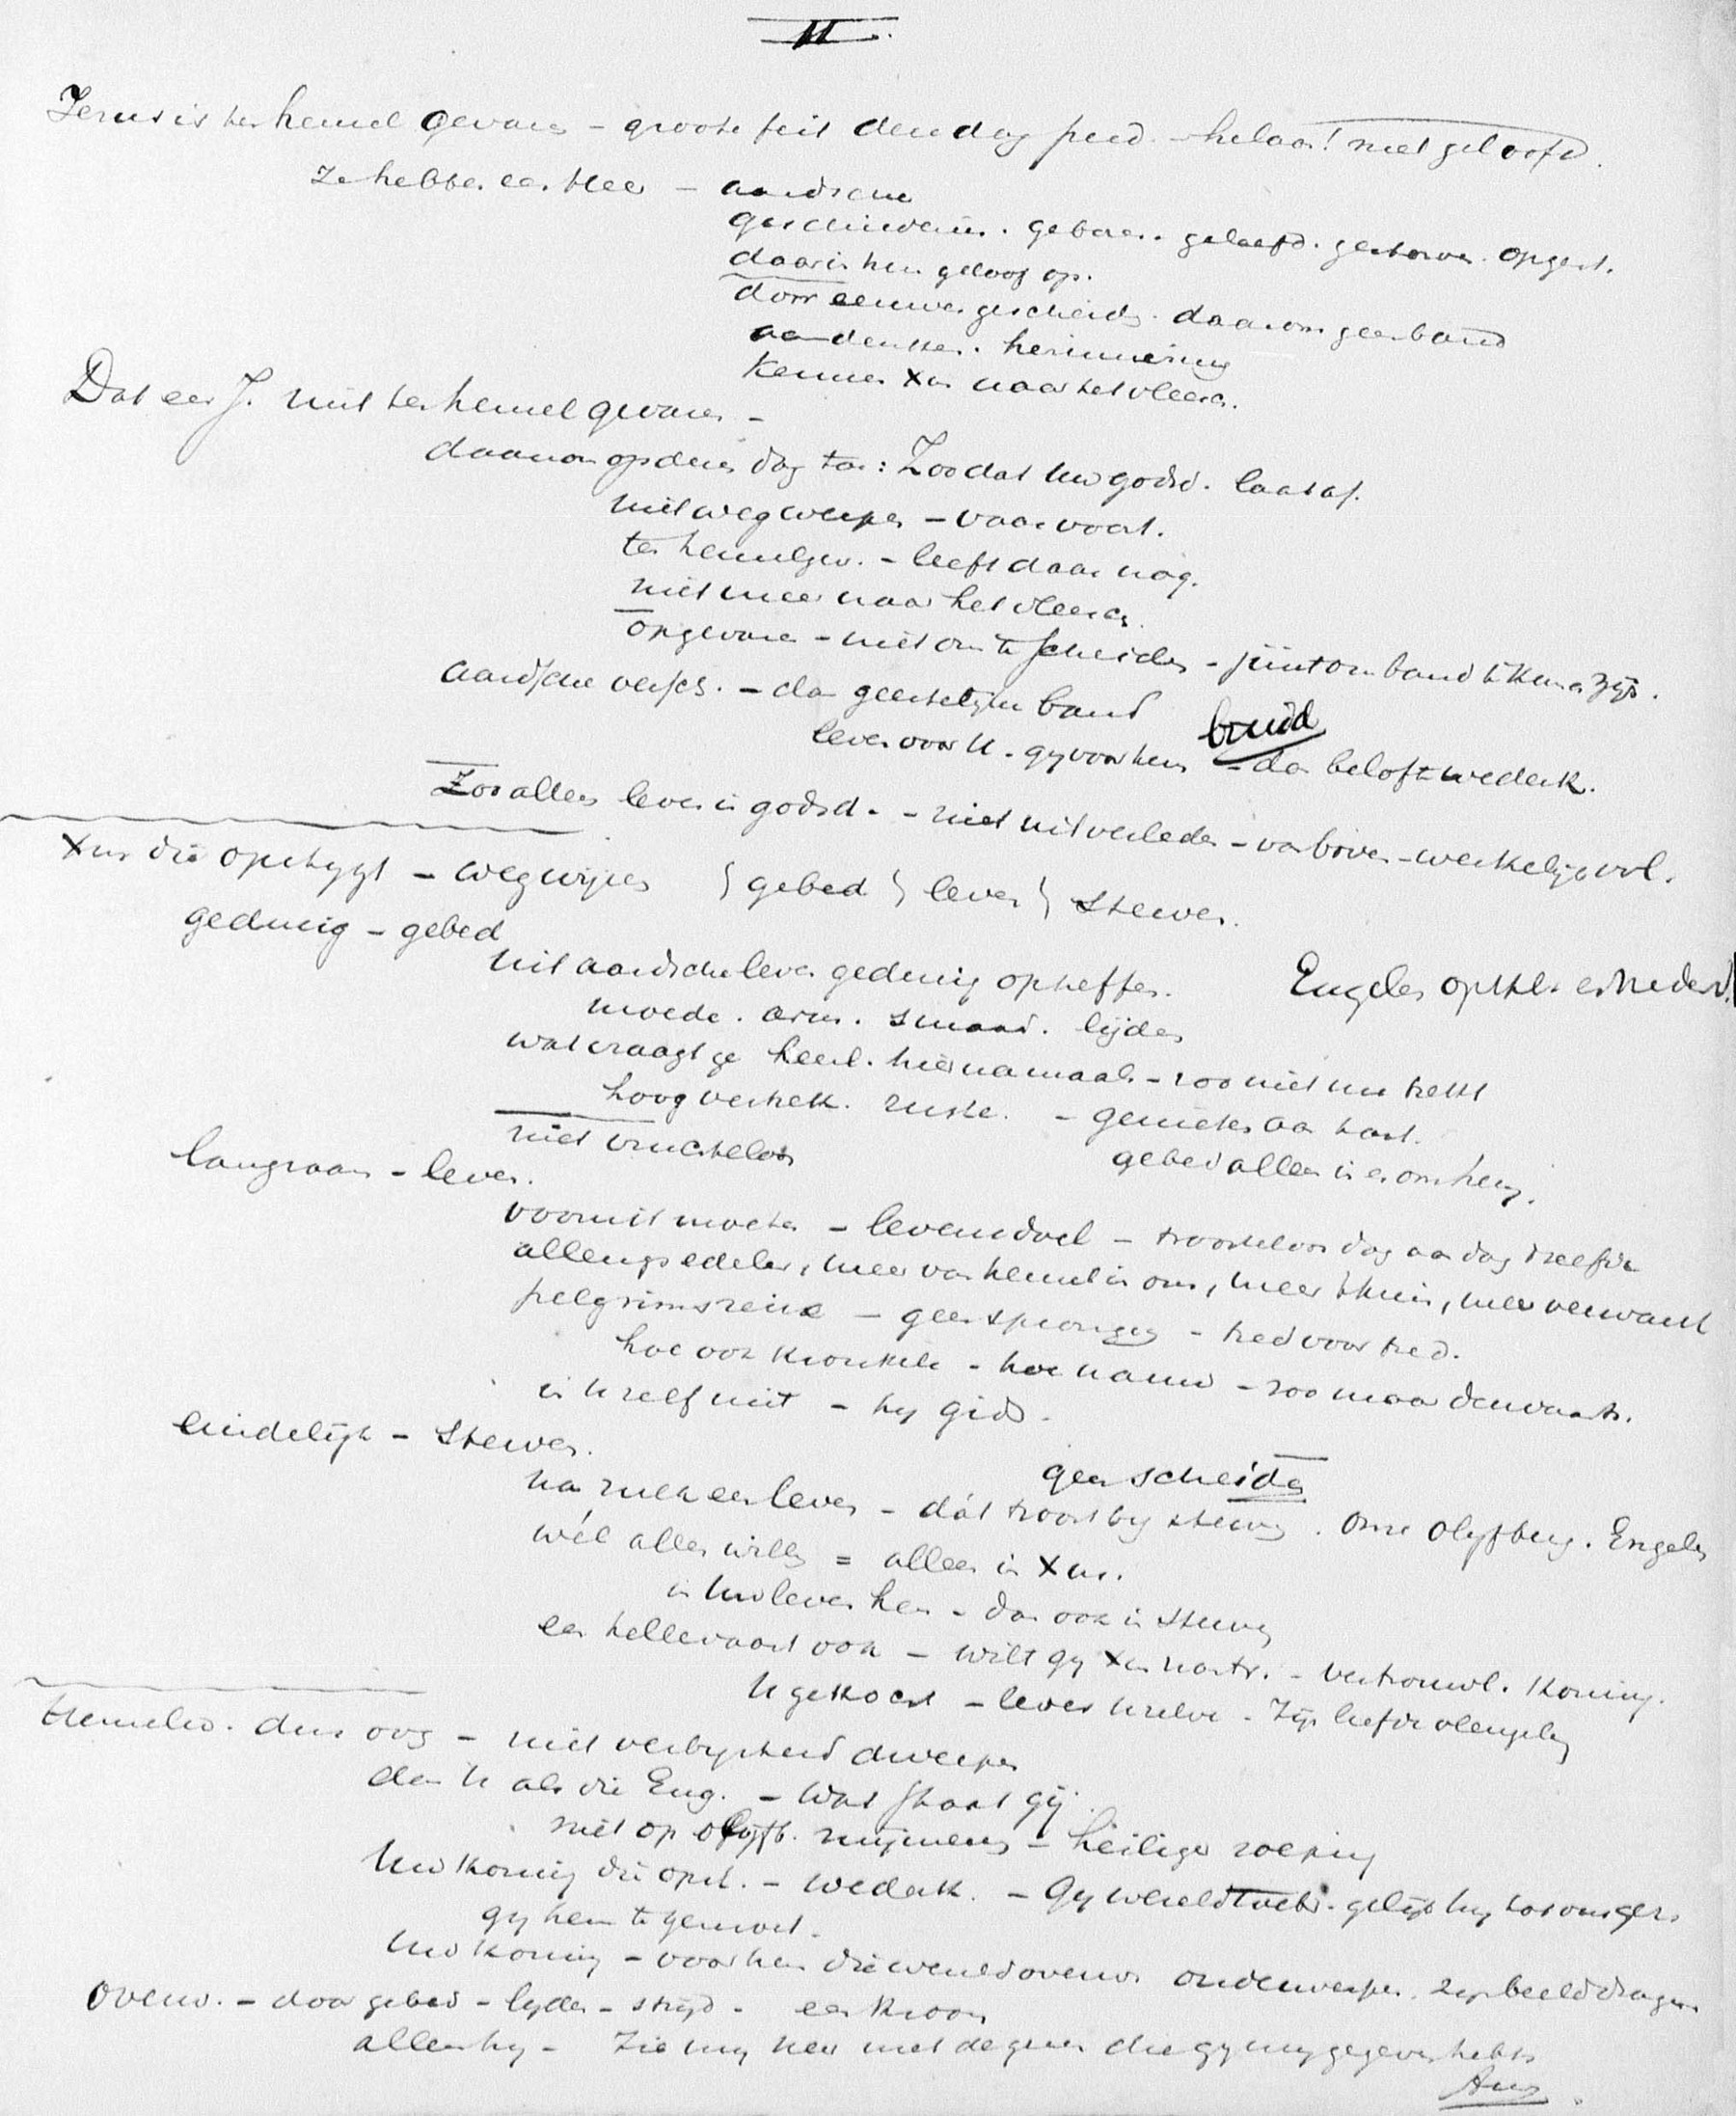 II.
Jezus is ten hemel gevaren – groote feit deze dag pred. – helaas! niet geloofd.
Ze hebben een Heer – aardsche
geschiedenis. geboren. geleefd. gestorven. opgest.
daar is hun geloof op.
door eeuwen gescheiden. daarom geen band
aandenken. herinnering
Kennen Xus naar het vleesch.
Dat een J. niet ten hemel gevaren –
daarom op dezen dag toe: Zoo dat uw godsd. laat af.
niet wegwerpen – vaar voort.
ten hemelgev. – leeft daar nog.
niet meer naar het vleesch.
opgevaren – niet om te scheiden – juist om band te Kunnen zijn.
aardsche versch. – dan geestelijke band
bruid
leven voor U. gy voor hem – dan belofte wederk.
Zoo alleen leven in godsd. – niet uit verleden – van boven – werkelijk vol.
Xus die opstygt – wegwijzer } gebed } leven } sterven.
gedurig – gebed
uit aardsche leven gedurig opheffen. Engelen opstk. en nederd.
moede. arm. smaad. lijden
wat vraagt ge heerl. hiernamaals – zoo niet nu trekt
hoog vertrek. ruste. – genieten aan hart.
niet vruchteloos gebed alleen is er omheen.
langzaam – leven.
vooruit moeten – levensdoel – troosteloos dag aan dag dezelfde
allengs edeler, meer van hemel in ons, meer thuis, meer verwant
pelgrimsreize – geen sprongen – tred voor tred.
hoe ook kronkele – hoe nauw – zoo maar derwaarts.
in U zelf niet – hy gids.
Eindelijk – sterven.
geen scheiden
na zulk een leven – dát troost by sterven. Onze Olyfberg. Engelen
wél allen willen = alleen in Xus.
in Uw leven hem – dan ook in sterven
een hellevaart ook – wilt gy Xus
vertrouwl. Koning.
U gekocht – leven U zelve – Zijn liefde vleugelen
Hemelv. dus oog – niet verbysterd dweepen
dan U als die Eng. – Wat staat gij.
niet op Olyfb. mijmeren – heilige roeping
Uw Koning die opst. – wederk. – Gy wereld gelijk hy tot ons
gy hem te gemoet.
Uw Koning – voor hem die wereld overw. onderwerpen. Zyn beeld dragen
Overw. – door gebed – lyden – strijd – een Kroon
alleen hy – Zie my hier met degenen die gy my gegeven hebt.
Am.